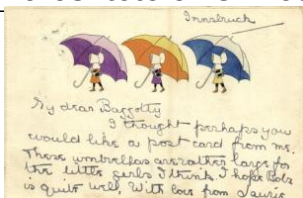 Innsbruck
My dear Baggotty
I thought perhaps you
would like a post card from me.
These umbrellas are rather large for
the little girls I think. I hope
is quite well. With love from Laurie